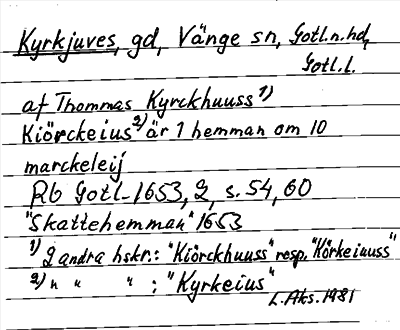 Kyrkjuves, gd, Vänge sn, Gotl.n.hd,
Gotl.l.
af Thommas Kyrckhuuss 1)
Kiörckeius 2) är 1 hemman om 10
marckeleij
Rb Gotl. 1653, 2, s. 54, 60
"Skattehemman" 1653
1) I andra hskr.: "Kiörckhuuss" resp. "Körkeiuuss"
2) " " " : "Kyrkeius"
L. Aks. 1981